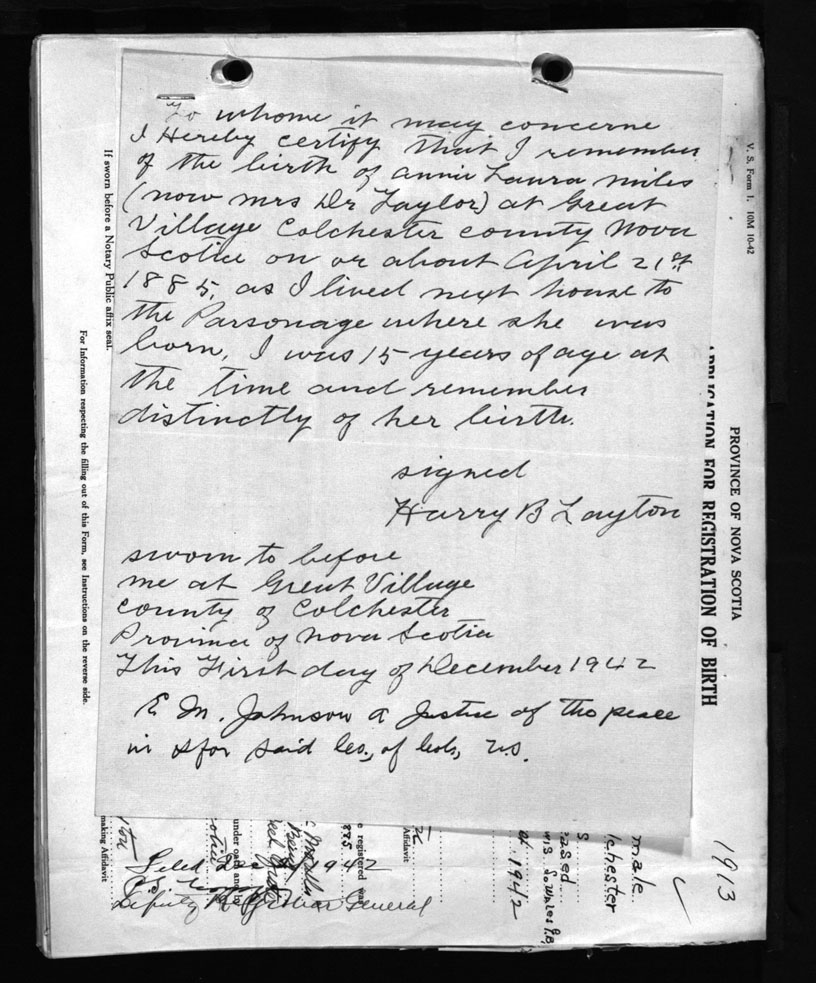 To whome it may concerne
I Hereby certify that I remember
of the birth of annie Laura miles
(now mrs Dr Taylor) at Great
Village Colchester county Nova
Scotia on or about April 21st
1885, as I lived next house to
the Parsonage where she was
born, I was 15 years of age at
the time and remember
distinctly of her birth.
signed
Harry B Layton
sworn to before
me at Great Village
county of Colchester
Province of Nova Scotia
This First day of December 1942
E M. Johnson a Justice of the peace
in & for said Co., of Col, N.S.
If sworn before a Notary Public affix seal.
For Information respecting the filling out of this Form, see Instructions on the reverse side.
V. S. Form 1. 10M 10-42
PROVINCE OF NOVA SCOTIA
APPLICATION FOR REGISTRATION OF BIRTH
1913
male
lchester
ased
1942
Affidavit
e registered was
885
1942
under oath and
making Affidavit
Filed
Deputy Registrar General